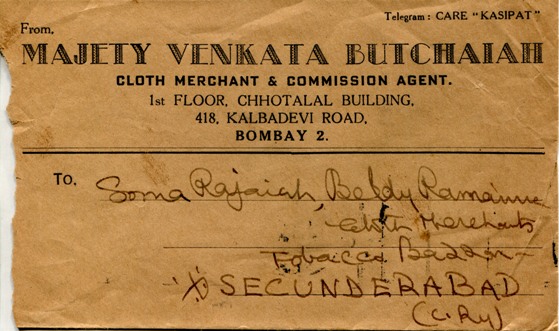 Telegram : CARE "KASIPAT"
From,
MAJETY VENKATA BUTCHAIAH
CLOTH MERCHANT & COMMISSION AGENT.
1st FLOOR, CHHOTALAL BUILDING,
418, KALBADEVI ROAD,
BOMBAY 2.
To,
Soma Rajaiah, Beldy Ramanna
Cloth Merchants
Tobacco Bazzar
SECUNDERABAD
(C. Ry)